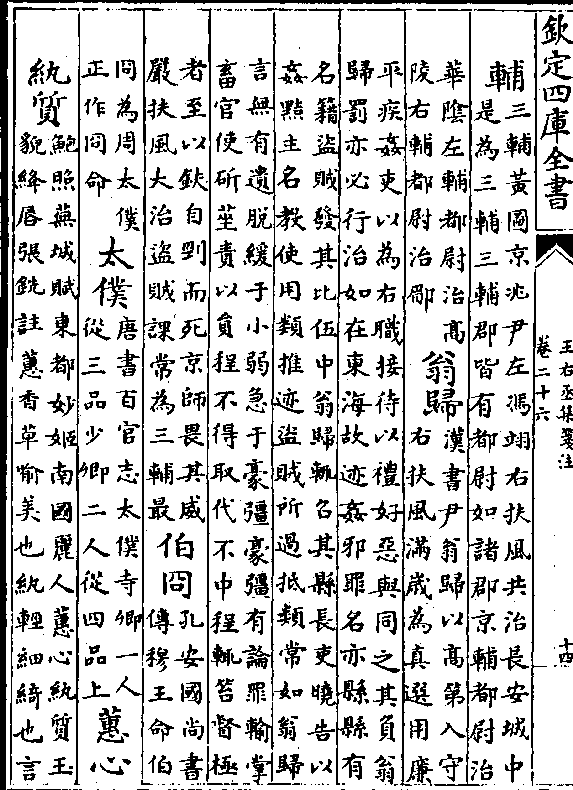 欽定四庫全書
王右丞集箋注
卷二十六
十四
輔
三輔黃圖京兆尹左馮翊右扶風共治長安城中
是為三輔三輔郡皆有都尉如諸郡京輔都尉治
華陰左輔都尉治髙
陵右輔都尉治郿
翁歸
漢書尹翁歸以髙第入守
右扶風滿歲為真選用廉
平疾姦吏以為右職接待以禮好惡與同之其負翁
歸罰亦必行治如在東海故迹姦邪罪名亦縣縣有
名籍盜賊發其比伍中翁歸輒召其縣長吏曉告以
姦黠主名教使用類推迹盜賊所過抵類常如翁歸
言無有遺脫緩于小弱急于豪彊豪彊有論罪輸掌
畜官使斫莝責以負程不得取代不中程輒笞督極
者至以鈇自剄而死京師畏其威
嚴扶風大治盜賊課常為三輔最
伯冏
孔安國尚書
傳穆王命伯
冏為周太僕
正作冏命
太僕
唐書百官志太僕寺卿一人
從三品少卿二人從四品上
蕙心
紈質
鮑照蕪城賦東都妙姬南國麗人蕙心紈質玉
貌絳唇張銑註蕙香草喻美也紈輕細綺也言